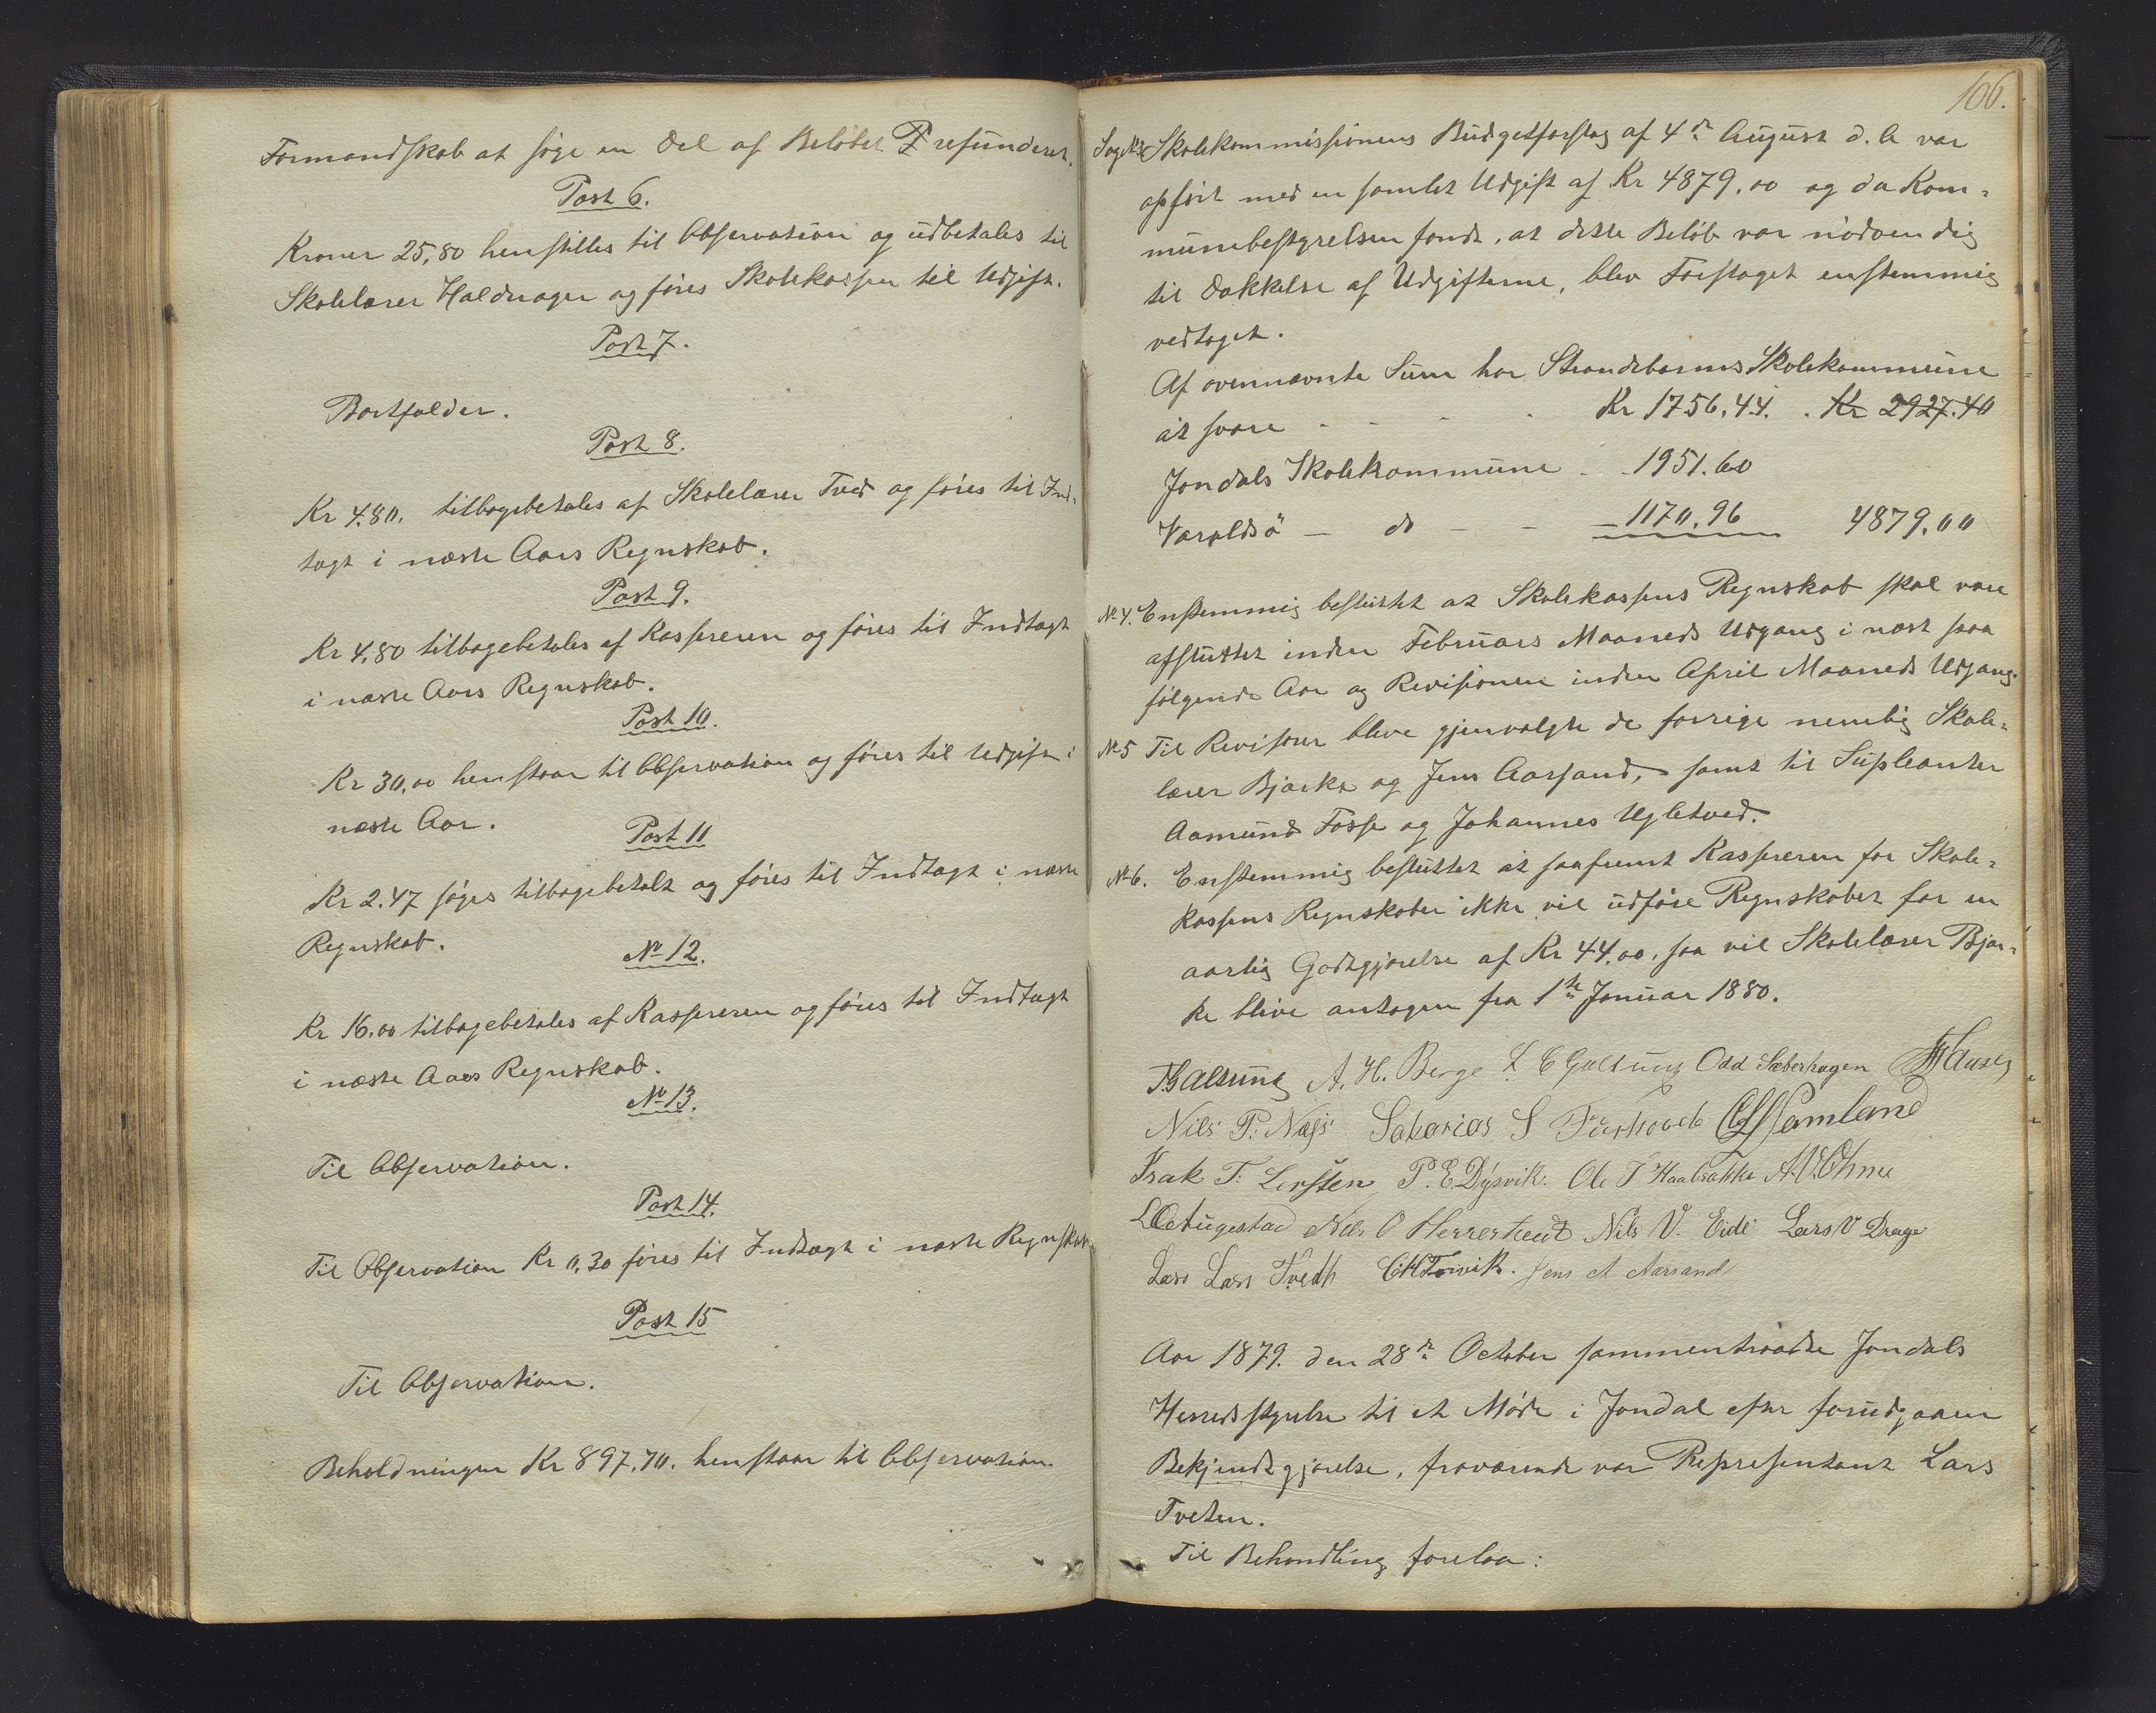 Formandskab at søge en Del af Beløbet refunderet.
Post 6.
Kroner 25,80 henstilles til Observation og udbetales til
Skolelærer Haldorager og føres Skolekassen til Udgift.
Post 7.
Bortfalder.
Post 8.
Kr 4.80. tilbagebetales af Skolelærer Tved og føres til Ind-
tægt i næste Aars Regnskab.
Post 9.
Kr 4,80 tilbagebetales af Kassereren og føres til Indtægt
i næste Aars Regnskab.
Post 10.
Kr 30,00 henstaar til Observation og føres til Udgift i
næste Aar.
Post 11
Kr 2.47 søges tilbagebetalt og føres til Indtægt i næste
Regnskab.
No 12.
Kr 16.00 tilbagebetales af Kassereren og føres til Indtægt
i næste Aars Regnskab.
No 13.
Til Observation.
Post 14.
Til Observation Kr 0,30 føres til Indtægt i næste Regnskab
Post 15
Til Observation.
Beholdningen Kr 897,70. henstaar til Observation.
106.
Sag No 3 Skolekommissionens Budgetforslag af 4de August d. A var
opført med en samlet Udgift af Kr 4879,00 og da Kom-
munebestyrelsen fandt, at dette Beløb var nødvendig
til Dækkelse af Udgifterne, blev Forslaget enstemmig
vedtaget.
Af ovennævnte Sum har Strandebarms Skolekommune
at svare - - - Kr 1756.44. . Kr 2927.40
Jondals Skolekommune - . 1951.60
Varaldsø - do - - - 1170,96 4879,00
No 4. Enstemmig besluttet at Skolekassens Regnskab skal være
afsluttet inden Februars Maaneds Udgang i næst paa
følgende Aar og Revisionen inden April Maaneds Udgang.
No 5 Til Revisorer bleve gjenvalgte de forrige nemlig Skole-
lærer Bjarke og Jens Aarsand, samt til Supleanter
Aamund Fosse og Johannes Ugletved.
No 6. Enstemmig besluttet at saafremt Kassereren for Skole-
kassens Regnskaber ikke vil udføre Regnskabet for en
aarlig Godtgjørelse af Kr 44,00, saa vil Skolelærer Bjar-
ke blive antagen fra 1ste Januar 1880.
Galtung A. H. Berge L C Galtung Odd Sæberhagen
Nils P. Næss Sakarias S
Isak T. P. E. Dysvik. Ole T
Nils O Nils V. Eide Lars V Drage
Lars Lars Tvedt Jens A Aarsand
Aar 1879. den 28de October sammentraadte Jondals
Herredsstyrelse til et Møde i Jondal efter forudgaaen
Bekjendtgjørelse, fraværende var Repræsentant Lars
Tveten.
Til Behandling forelaa: